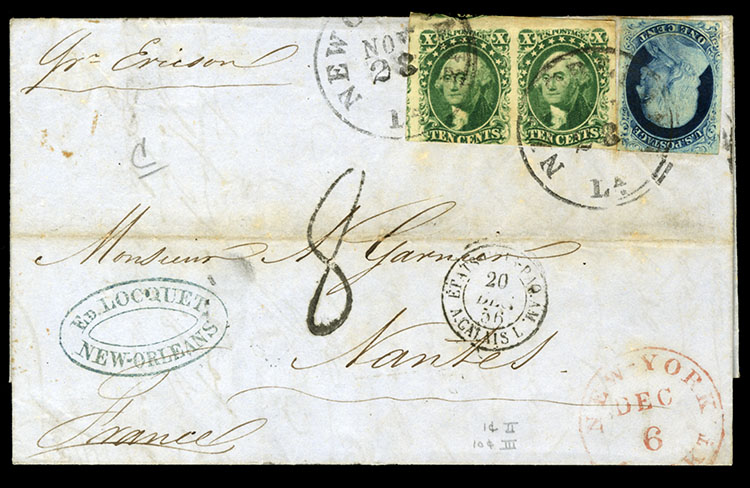 Pr Ericson
NEW O
NOV
28
LA
X U.S. POSTAGE X
TEN CENTS
X U.S. POSTAGE X
TEN CENTS
U.S. POSTAGE
ONE CENT
N
28
LA
8
Monsieur A. Garnier
ED. LOCQUET
NEW-ORLEANS
20
DEC
56
A. CALAIS
Nantes
France
NEW-YORK
DEC
6
1¢ II
10¢ III